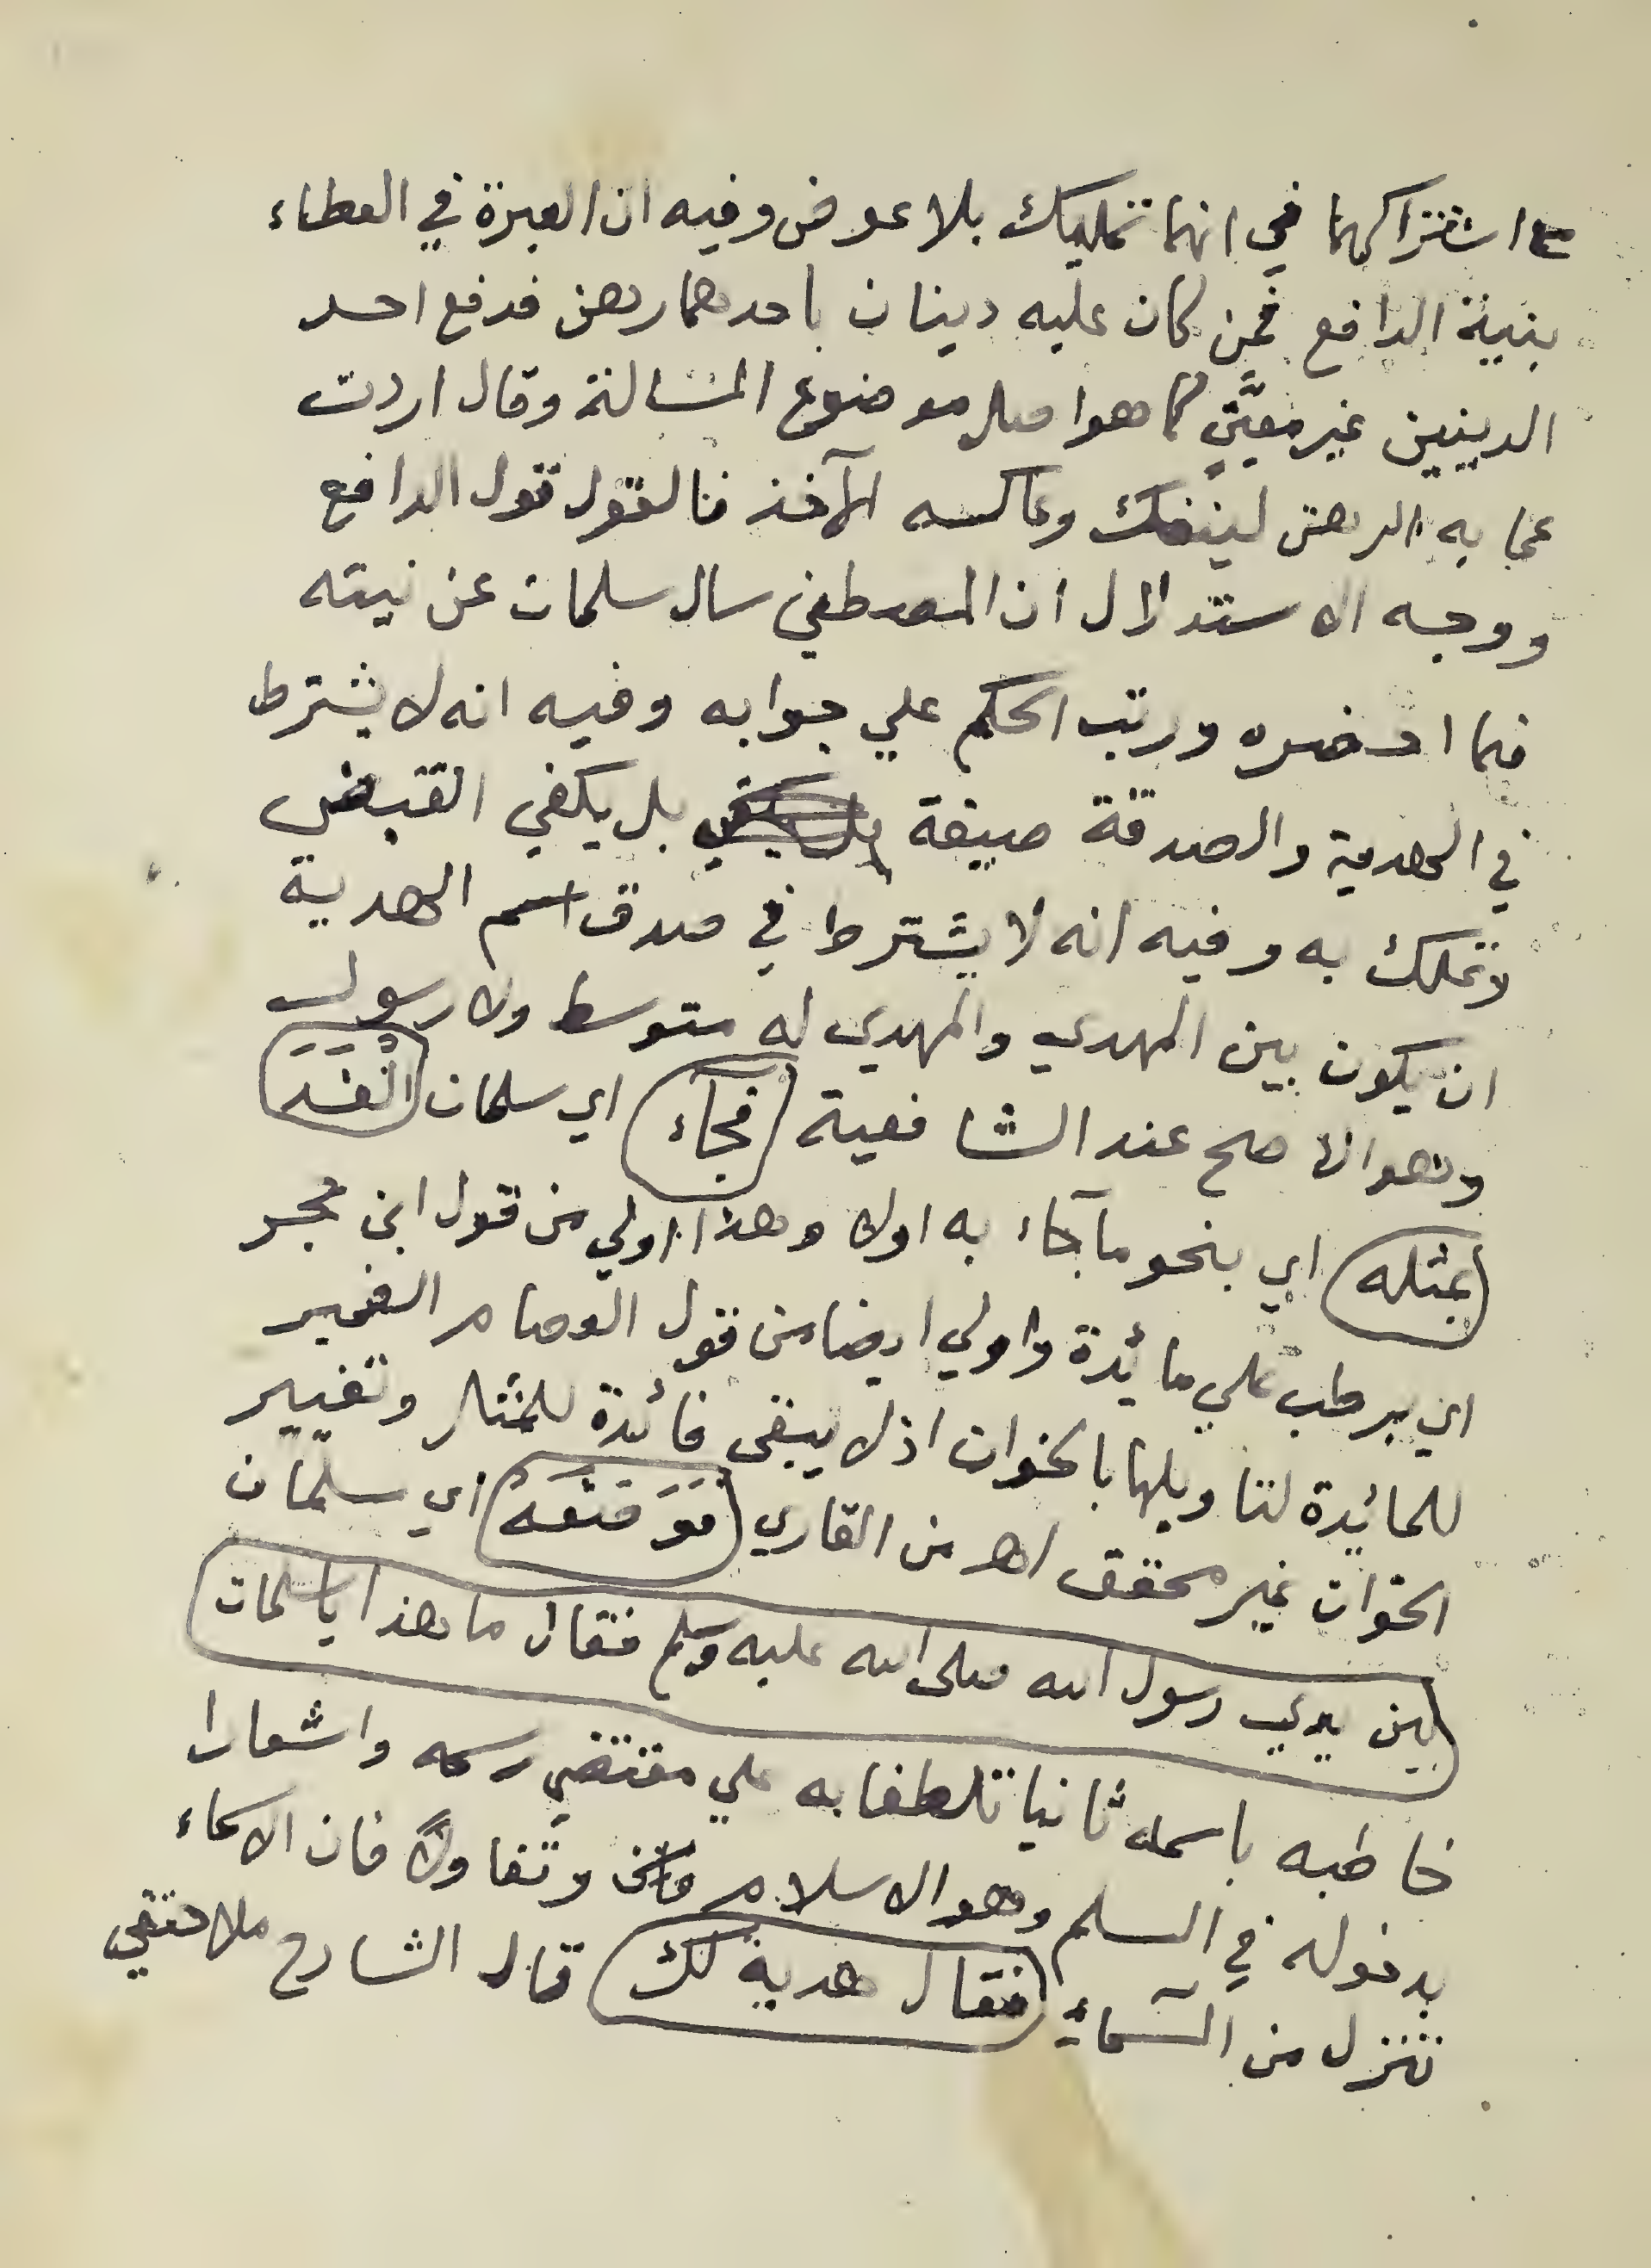 اشتراكهما في انها تمليك بلا عوض وفيه ان العبرة في العطاء
بنية الدافع فمن كان عليه دينان باحدهما رهن فدفع احد
الدينين غير معيَّنٍ كما هوا صل موضوع المسالة وقال اردت
عما به الرهن لينفك وعاكسه الآخذ فالقول قول الدافع
ووجه الاستدلال ان المصطفي سال سلمان عن نيته
فيما احضره ورتب الحكم علي جوابه وفيه انه لا يشترط
في الهدية والصدقة صيغة بل يكفي القبض
وتملك به وفيه انه لا يشترط في صدق اسم الهدية
ان يكون بين المهدي والمهدي له متوسط ولا رسول
وهو الاصح عند الشافعية فجآء اي سلمان الْغَدَ
بمثله اي بنحو ما جآء به اولا وهذا اولي من قول ابن حجر
اي برطب علي مائدة واولي ايضا من قول العصام الضمير
للمائدة لتاويلها بالخوان اذ لا يبقى فائدة للمثال وتغيير
الخوان غير محقق اهـ من القاري فَوَضَعَهُ اي سلمان
بين يدي رسول الله صلى الله عليه وسلم فقال ما هذا يا سلمان
خاطبه باسمه ثانيا تلطفا به علي مقتضي رسمه واشعارا
بدخوله في السلم وهو الاسلام وتفاولاً فان الاسماء
تنزل من السَّمآء فقال هدية لك قال الشارح ملا حنفي